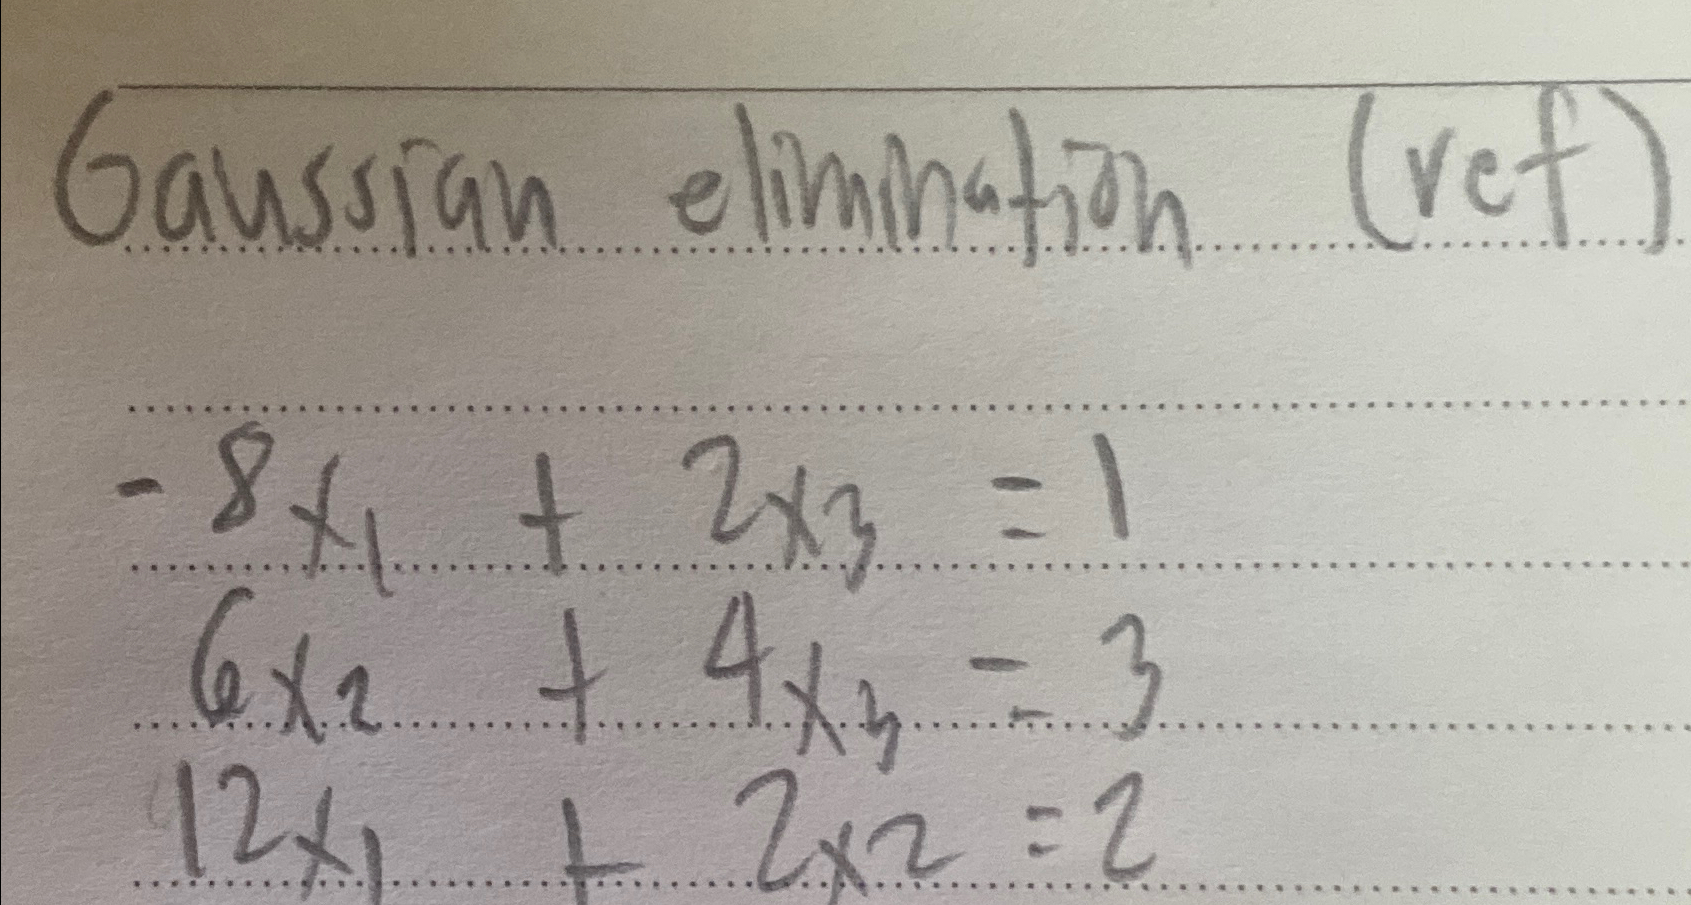 Gaussian elimination (ref)
-8x₁ + 2x₃ = 1
6x₂ + 4x₃ = 3
12x₁ + 2x₂ = 2